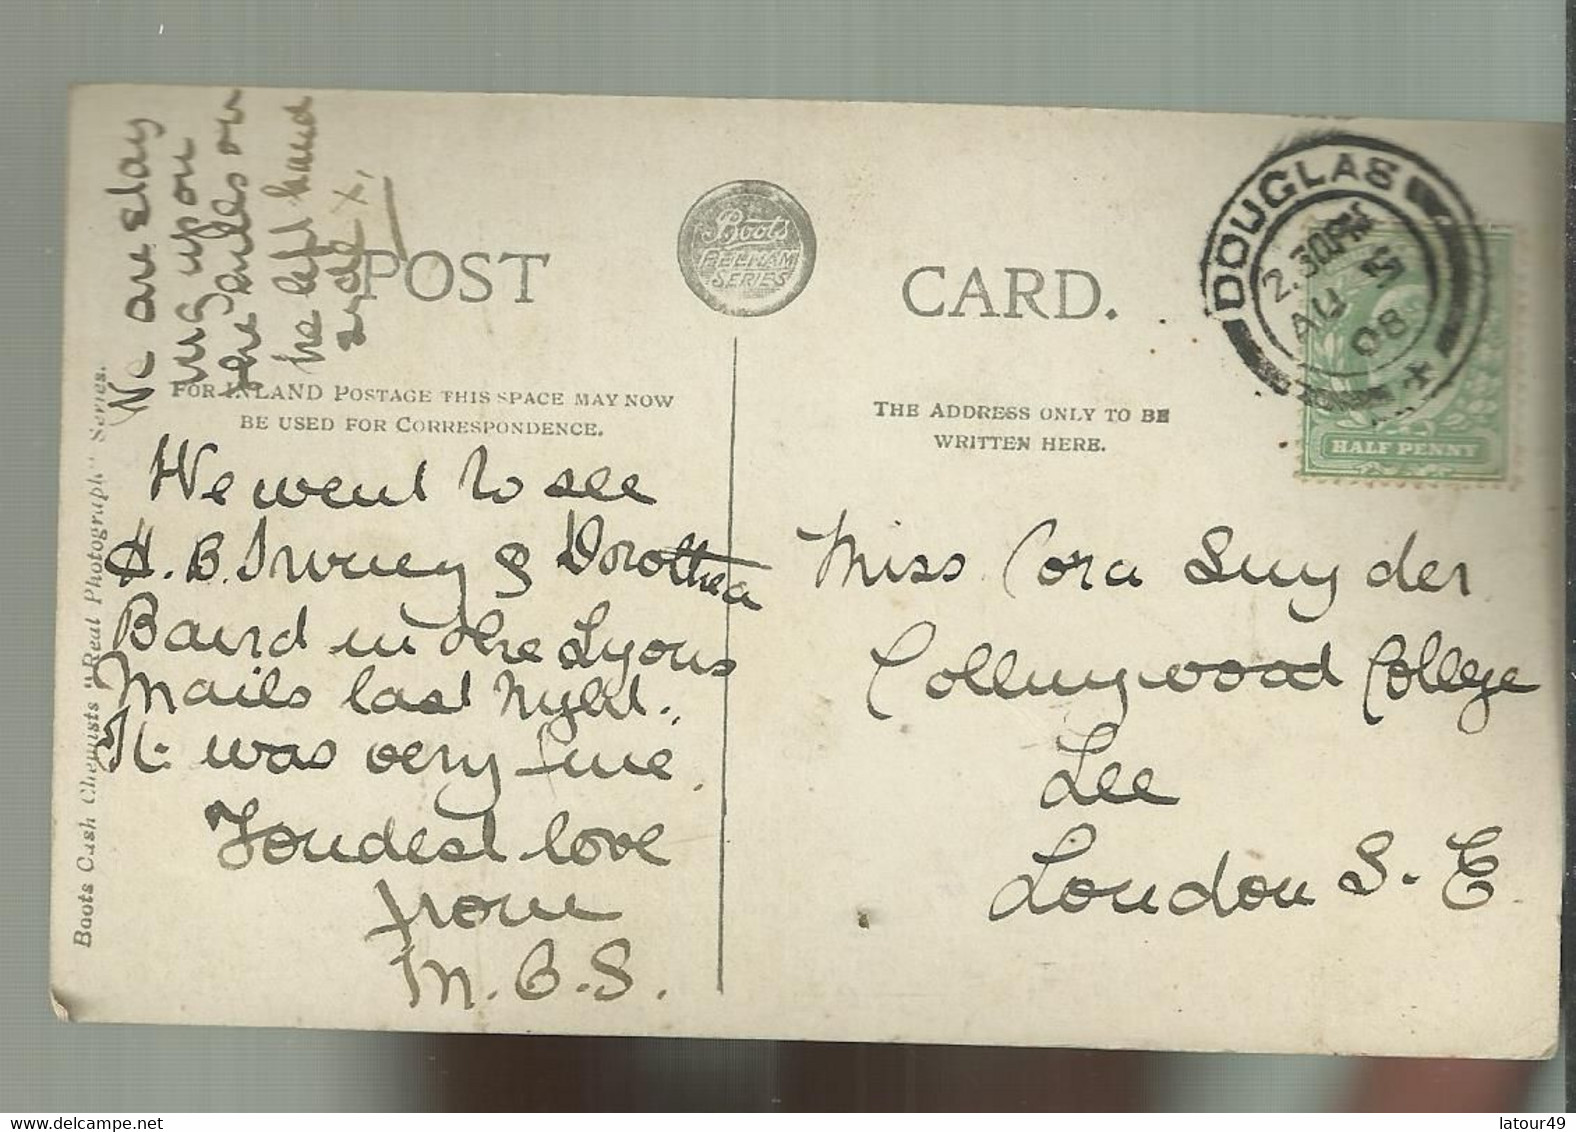 We are stay
ing upon
the hills on
the left hand
side X.
POST CARD.
Boots
PELHAM
SERIES
DOUGLAS
2.30PM
AU 5
08
HALF PENNY
FOR INLAND POSTAGE THIS SPACE MAY NOW
BE USED FOR CORRESPONDENCE.
THE ADDRESS ONLY TO BE
WRITTEN HERE.
Boots Cash Chemists "Real Photograph" Series.
We went to see
H. B. Irving & Dorothea
Baird in the Lyons
Mails last night.
It was very fine
Fondest love
from
M. B. S.
Miss Cora Snyder
Collingwood College
Lee
London S. E.
latour49